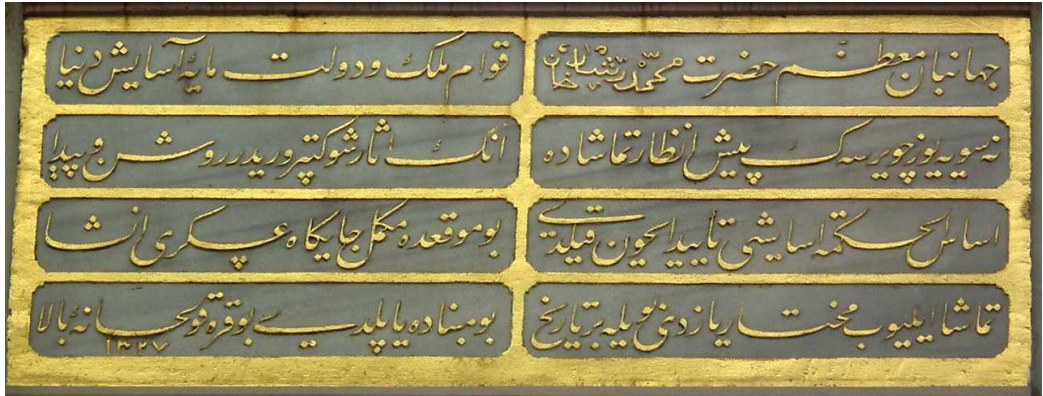 جهانبان معظم حضرت محمد رشاد خان
قوام ملك و دولت مايۀ آسايش دنيا
نه سويه يوز چويرسه ك پيش انظار تماشاده
انك اثار شوكتپروريدر روشن و پيدا
اساس الحكمه اسايشى تأييد ايچون قيلدى
بو موقعده مكمل جايكاه عسكرى انشا
تماشا ايليوب مختار يازدى بويله بر تاريخ
بو مبناده ياپلدى بو قره قولخانۀ بالا
١٣٢٧